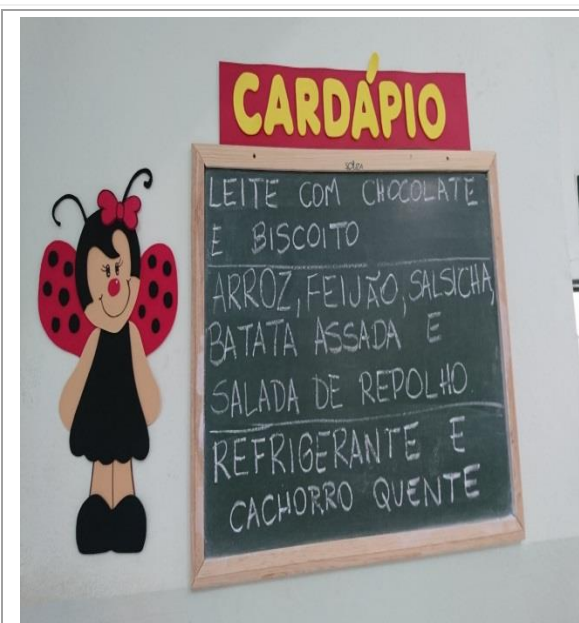 CARDÁPIO
LEITE COM CHOCOLATE
E BISCOITO
ARROZ, FEIJÃO, SALSICHA,
BATATA ASSADA E
SALADA DE REPOLHO
REFRIGERANTE E
CACHORRO QUENTE